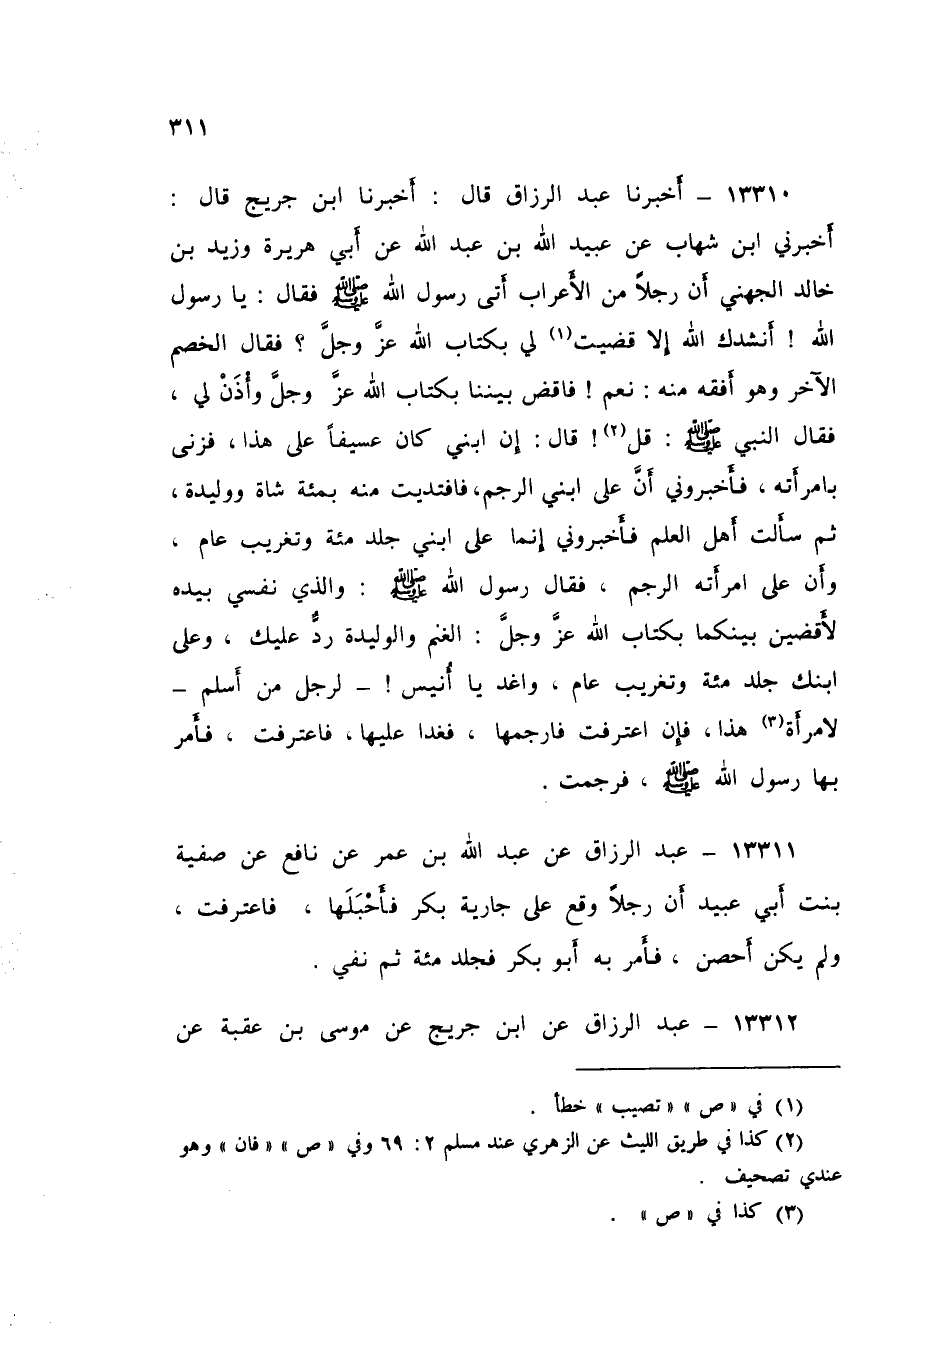 ٣١١
١٣٣١٠ – أَخبرنا عبد الرزاق قال : أَخبرنا ابن جريج قال :
أَخبرني ابن شهاب عن عبيد الله بن عبد الله عن أَبي هريرة وزيد بن
خالد الجهني أَن رجلاً من الأَعراب أَتى رسول الله ﷺ فقال : يا رسول
الله ! أَنشدك الله إلا قضيت(١) لي بكتاب الله عزَّ وجلَّ ؟ فقال الخصم
الآخر وهو أَفقه منه : نعم ! فاقض بيننا بكتاب الله عزَّ وجلَّ وأْذَنْ لي ،
فقال النبي ﷺ : قل(٢) ! قال : إن ابني كان عسيفاً على هذا ، فزنى
بامرأَته ، فأَخبروني أَنَّ على ابني الرجم، فافتديت منه بمئة شاة ووليدة ،
ثم سأَلت أَهل العلم فأَخبروني إنما على ابني جلد مئة وتغريب عام ،
وأَن على امرأَته الرجم ، فقال رسول الله ﷺ : والذي نفسي بيده
لأَقضين بينكما بكتاب الله عزَّ وجلَّ : الغنم والوليدة ردٌّ عليك ، وعلى
ابنك جلد مئة وتغريب عام ، واغد يا أُنيس ! – لرجل من أَسلم –
لامرأَة(٣) هذا ، فإن اعترفت فارجمها ، فغدا عليها ، فاعترفت ، فأَمر
بها رسول الله ﷺ ، فرجمت .
١٣٣١١ – عبد الرزاق عن عبد الله بن عمر عن نافع عن صفية
بنت أَبي عبيد أَن رجلاً وقع على جارية بكر فأَحْبَلَها ، فاعترفت ،
ولم يكن أَحصن ، فأَمر به أَبو بكر فجلد مئة ثم نفي .
١٣٣١٢ – عبد الرزاق عن ابن جريج عن موسى بن عقبة عن
(١) في « ص » « تصيب » خطأ .
(٢) كذا في طريق الليث عن الزهري عند مسلم ٢ : ٦٩ وفي « ص » « فان » وهو
عندي تصحيف .
(٣) كذا في « ص » .